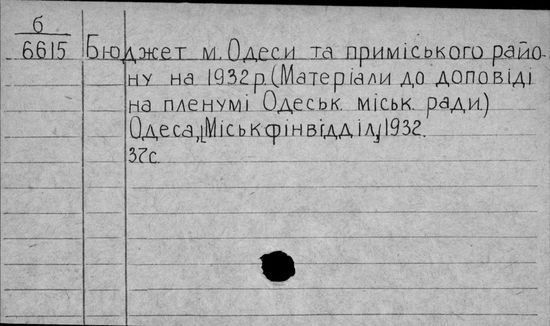 б
6615 Бюджет м. Одеси та приміського райо-
ну на 1932 р. (Матеріали до доповіді
на пленумі Одеськ. міськ. ради.)
Одеса, [Міськфінвідділ], 1932.
37 с.